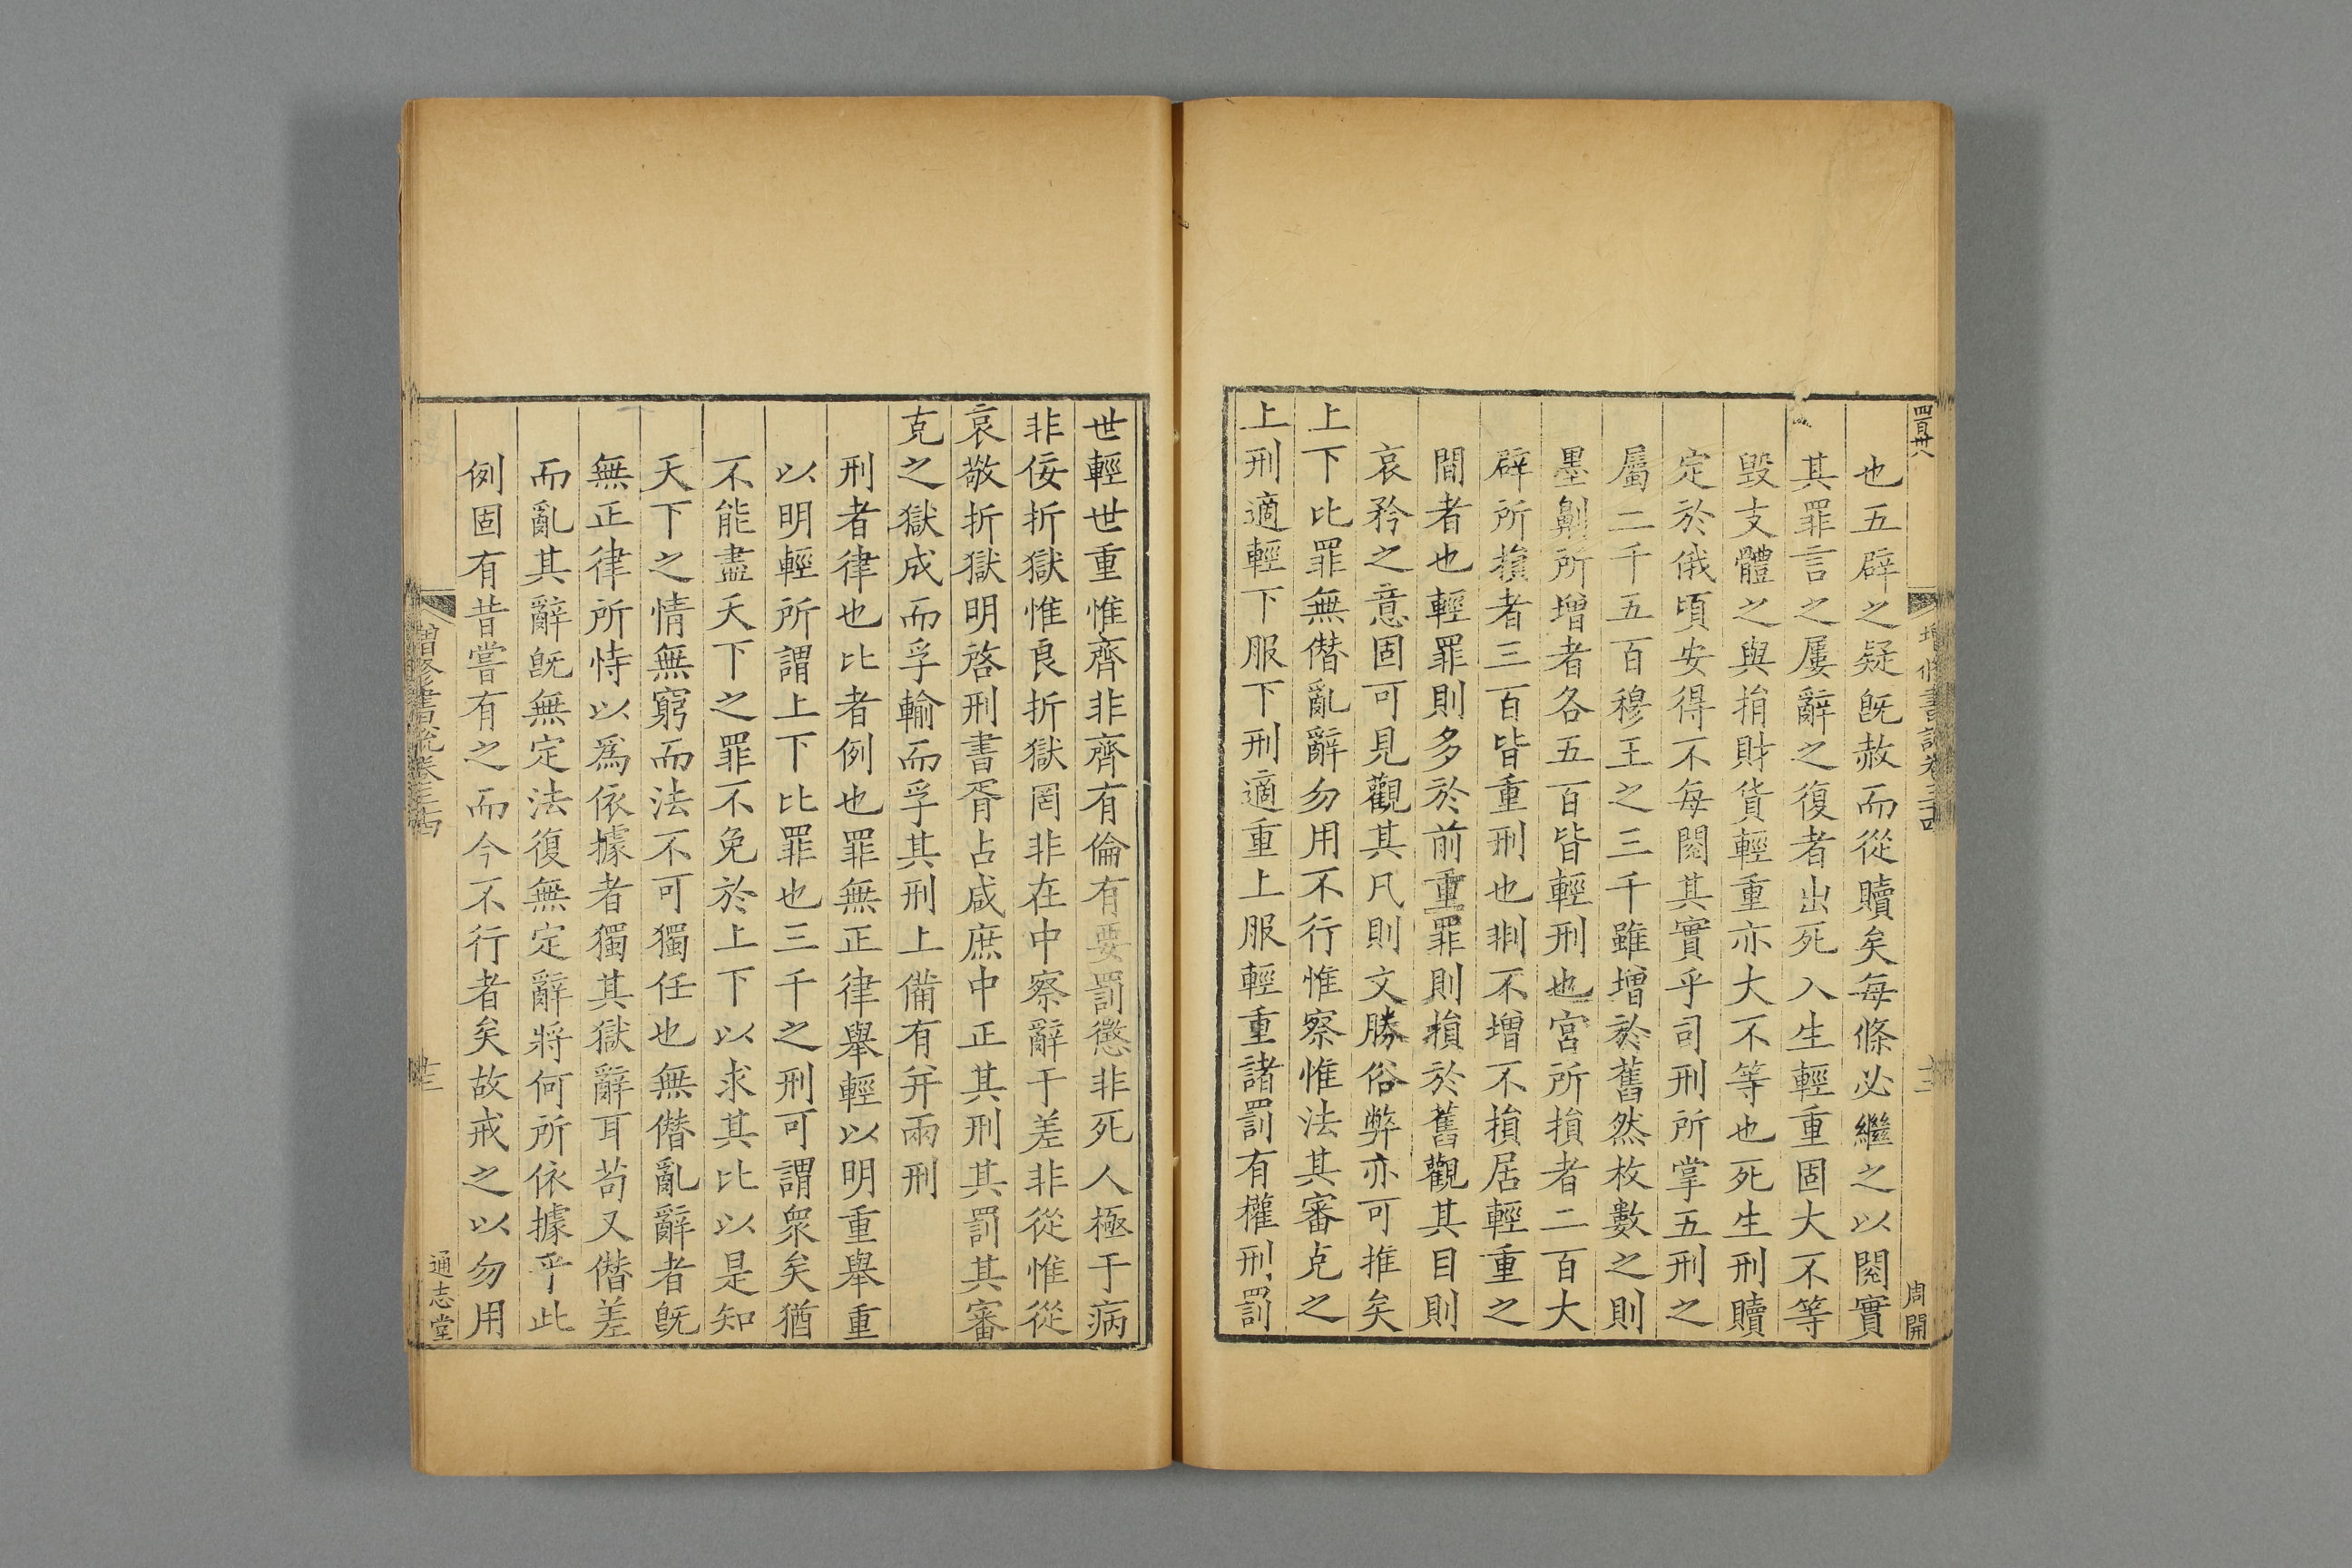 四百卅八
增修書說卷三十四
周開
也五辟之疑旣赦而從贖矣每條必繼之以閱實
其罪言之屢辭之復者出死入生輕重固大不等
毀支體之與捐財貨輕重亦大不等也死生刑贖
定於俄頃安得不每閱其實乎司刑所掌五刑之
屬二千五百穆王之三千雖增於舊然枚數之則
墨劓所增者各五百皆輕刑也宮所損者二百大
辟所損者三百皆重刑也剕不增不損居輕重之
間者也輕罪則多於前重罪則損於舊觀其目則
哀矜之意固可見觀其凡則文勝俗弊亦可推矣
上下比罪無僭亂辭勿用不行惟察惟法其審克之
上刑適輕下服下刑適重上服輕重諸罰有權刑罰
世輕世重惟齊非齊有倫有要罰懲非死人極于病
非佞折獄惟良折獄罔非在中察辭于差非從惟從
哀敬折獄明啓刑書胥占咸庶中正其刑其罰其審
克之獄成而孚輸而孚其刑上備有并兩刑
刑者律也比者例也罪無正律舉輕以明重舉重
以明輕所謂上下比罪也三千之刑可謂衆矣猶
不能盡天下之罪不免於上下以求其比以是知
天下之情無窮而法不可獨任也無僭亂辭者旣
無正律所恃以爲依據者獨其獄辭耳苟又僭差
而亂其辭旣無定法復無定辭將何所依據乎此
例固有昔嘗有之而今不行者矣故戒之以勿用
增修書說卷三十四
通志堂